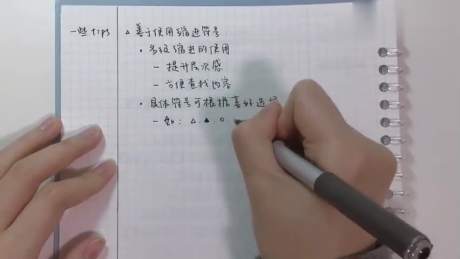 一些 tips
△ 善于使用缩进符号
• 多级缩进的使用
– 提升层次感
– 方便查找内容
• 具体符号可根据喜好选择
– 如：△.▲.○